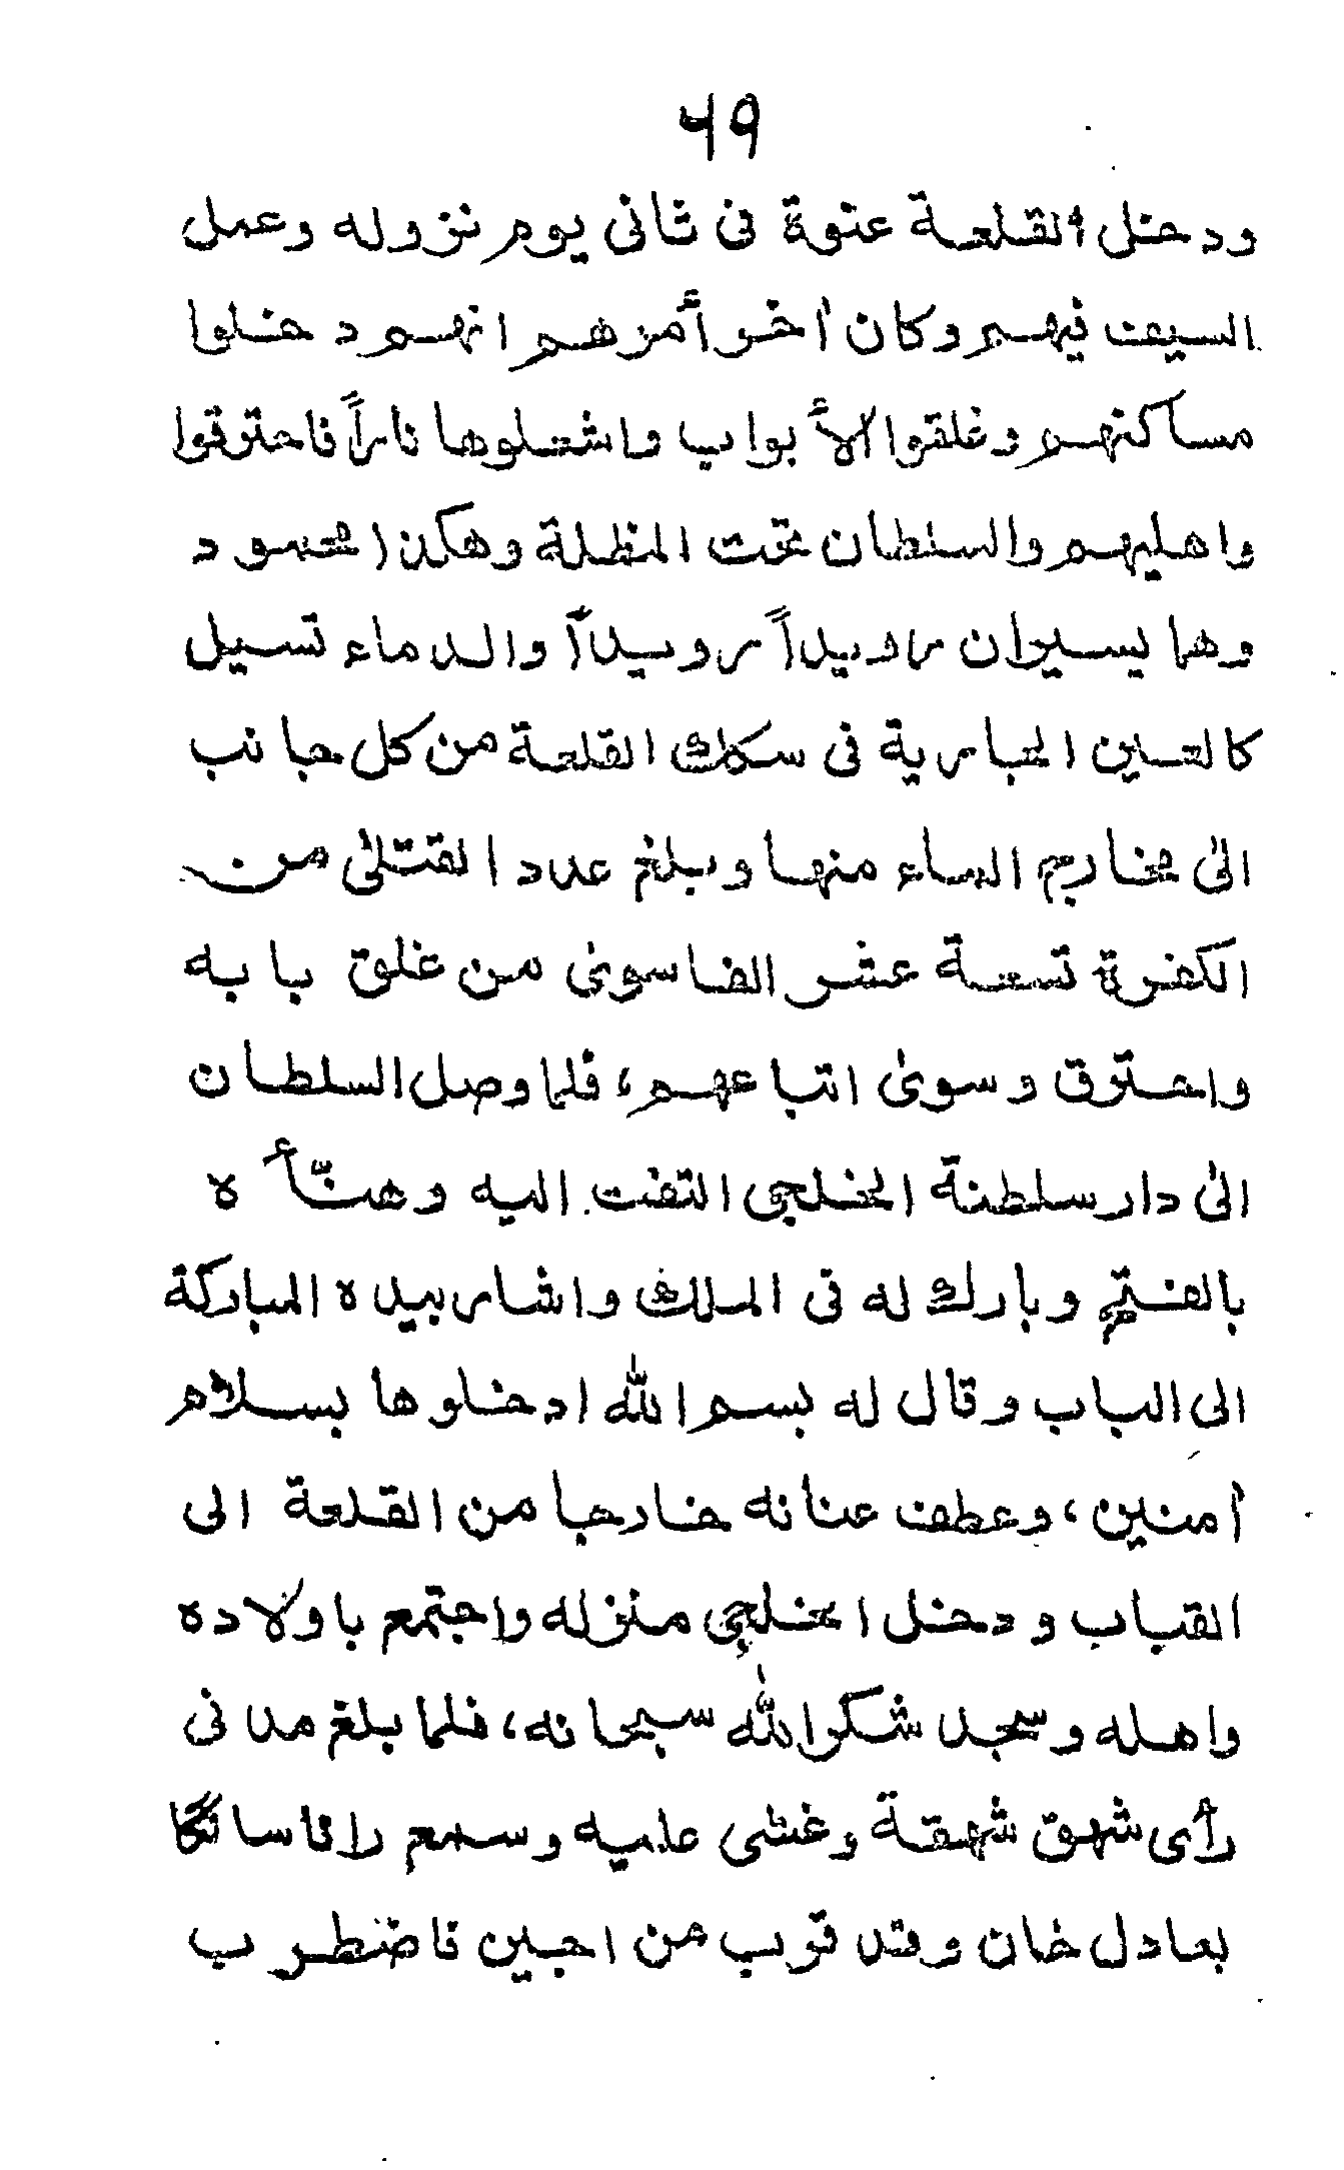 ٤٩
ودخل القلعة عنوة فى ثانى يوم نزوله وعمل
السيف فيهم وكان أخر أمرهم انهم دخلوا
مساكنهم وغلقوا الأبواب واشعلوها ناراً فاحترقوا
واهليهم والسلطان تحت المظلة وهكذا محمود
وهما يسيران راويداً رويداً والدماء تسيل
كالعين الجارية فى سكك القلعة من كل جانب
الى مخارج الماء منها وبلغ عدد القتلى من
الكفرة تسعة عشر الفا سوى من غلق بابه
واحترق وسوى اتباعهم، فلما وصل السلطان
الى دار سلطنة الخلجى التفت اليه وهنّأه
بالفتح وبارك له فى الملك واشار بيده المباركة
الى الباب وقال له بسم الله ادخلوها بسلام
أمنين، وعطف عنانه خارجا من القلعة الى
القباب ودخل الخلجى منزله واجتمع باولاده
واهله وسجد شكرا لله سبحانه، فلما بلغ مدنى
رأى شهق شهقة وغشى عليه وسمع رانا سانكا
بعادل خان وقد قرب من اجين فاضطرب